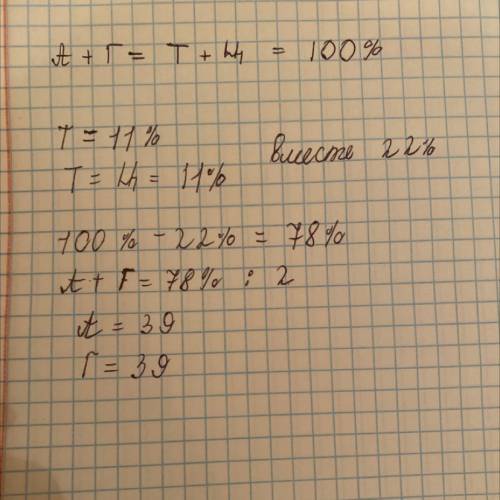 А + Г = Т + Ц = 100%
Т = 11%
Т = Ц = 11% вместе 22%
100 % - 22% = 78%
А + Г = 78% : 2
А = 39
Г = 39